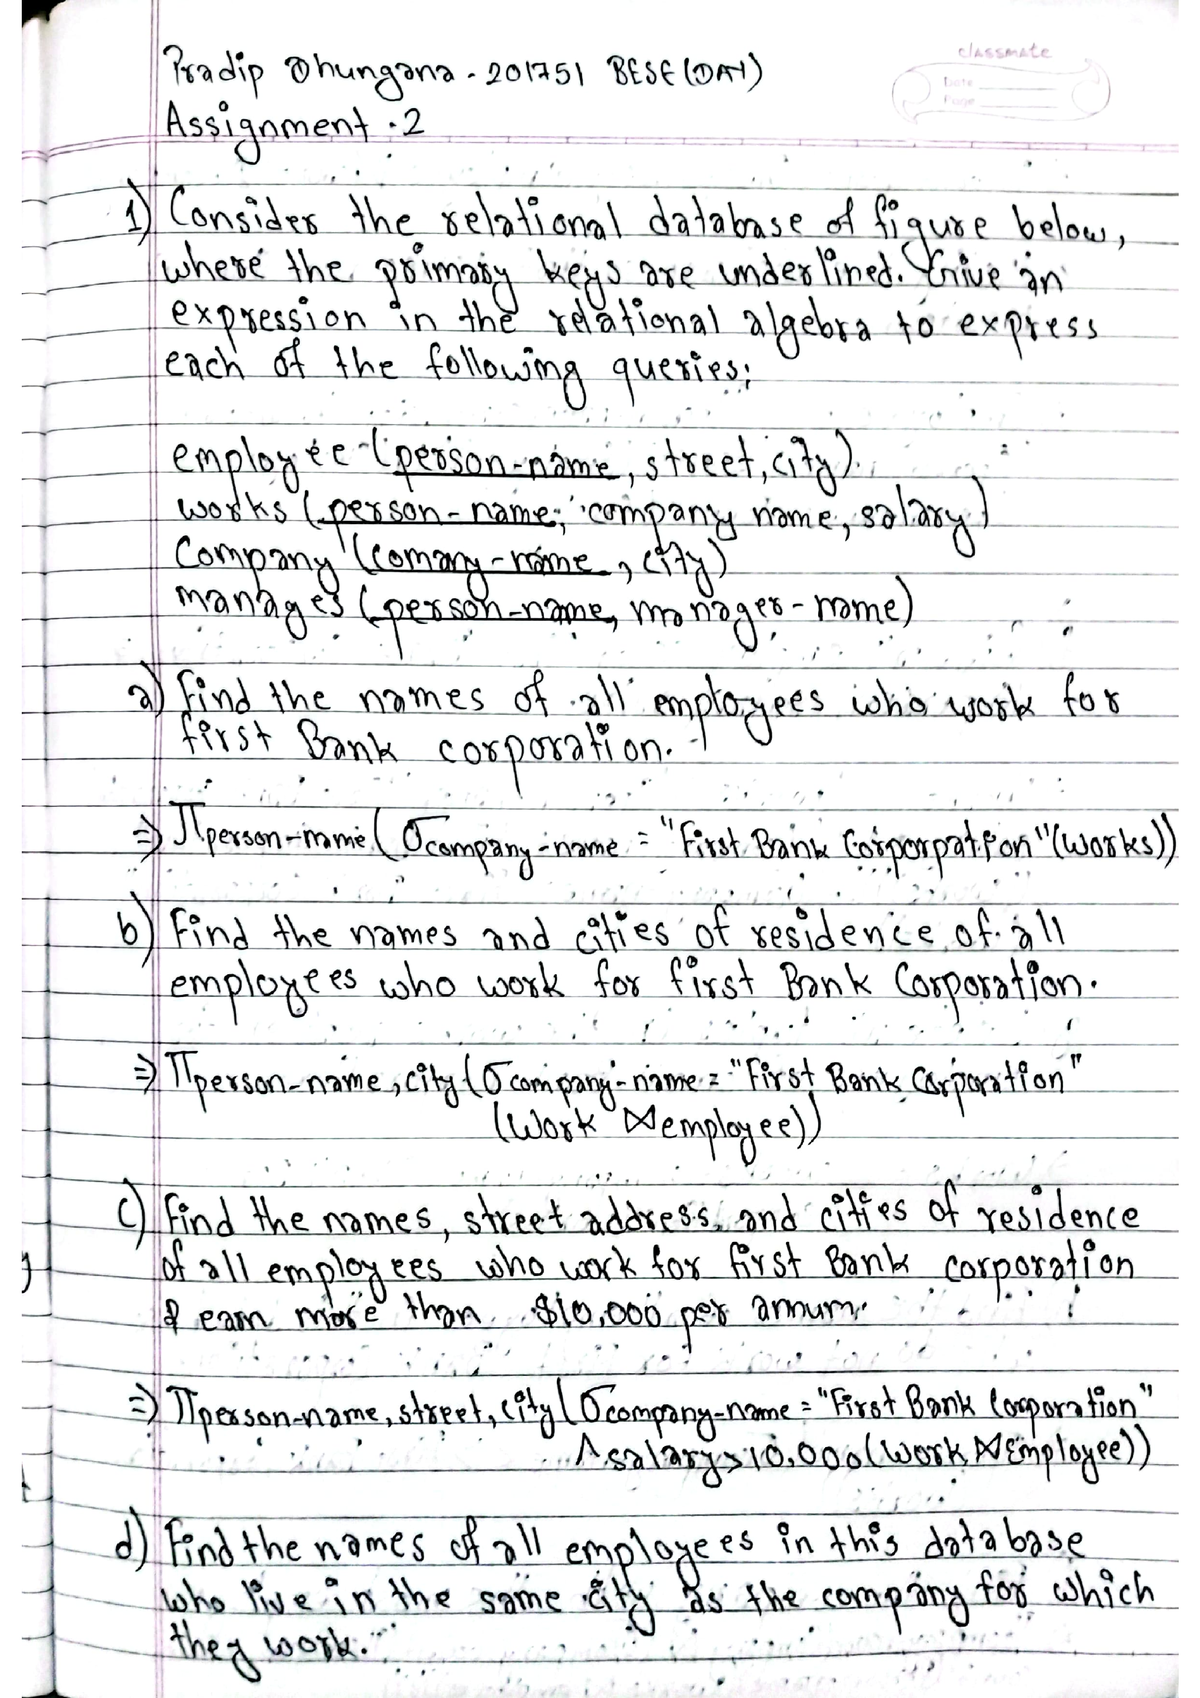 classmate
Date
Page
Pradip Dhungana - 201751 BESE (DAY)
Assignment - 2
1) Consider the relational database of figure below,
where the primary keys are underlined. Give an
expression in the relational algebra to express
each of the following queries;
employee (person-name, street, city)
works (person-name, company name, salary)
Company (comany-name, city)
manages (person-name, manager-name)
a) Find the names of all employees who work for
first Bank corporation.
=> Πperson-name (σcompany-name = "First Bank Corporpation" (works))
b) Find the names and cities of residence of all
employees who work for first Bank Corporation.
=> Πperson-name, city (σcompany-name = "First Bank Corporation"
(Work ⋈ employee))
c) Find the names, street address, and cities of residence
of all employees who work for first Bank corporation
& earn more than $10,000 per annum.
=> Πperson-name, street, city (σcompany-name = "First Bank Corporation"
∧ salary > 10,000 (work ⋈ Employee))
d) Find the names of all employees in this database
who live in the same city as the company for which
they work.